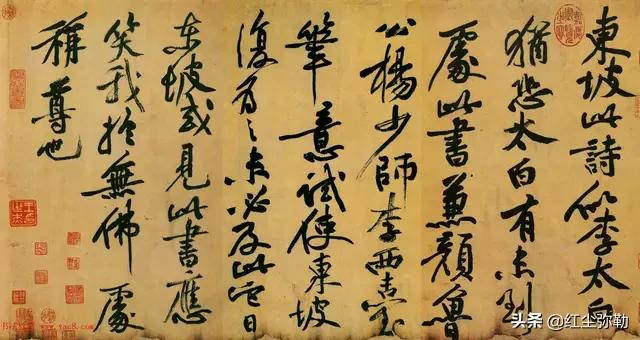 東坡此詩似李太白
猶恐太白有未到
處此書兼顏魯
公楊少師李西臺
筆意試使東坡
復為之未必及此它日
東坡或見此書應
笑我於無佛處
稱尊也
www.yac8.com
头条 @红尘弥勒